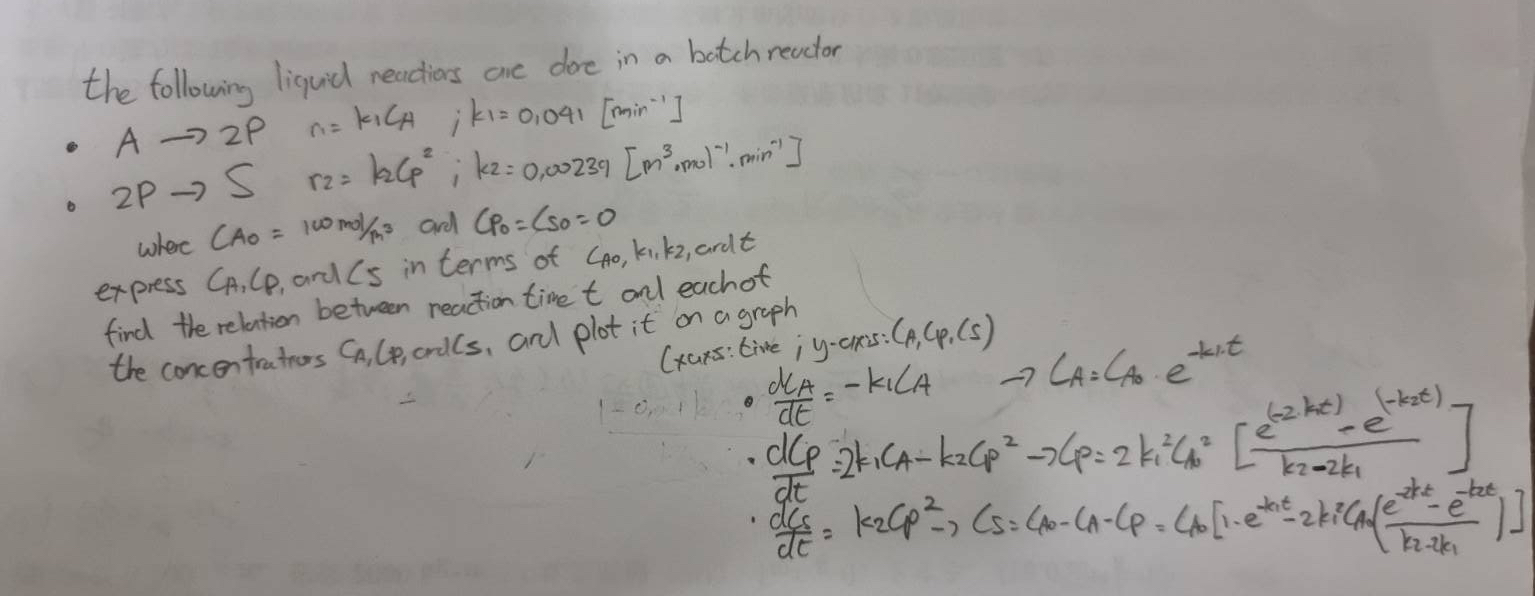 the following liquid reactions are done in a batch reactor
• A → 2P r1= k1CA ; k1= 0,041 [min⁻¹]
• 2P → S r2= k2Cp² ; k2= 0,00239 [m³.mol⁻¹.min⁻¹]
where CA0 = 100 mol/m³ and CP0=CS0=0
express CA, CP, and CS in terms of CA0, k1, k2, and t
find the relation between reaction time t and each of
the concentrations CA, CP, and CS, and plot it on a graph
(x axis: time ; y-axis: CA, CP, CS)
• dCA/dt = -k1CA → CA=CA0 · e^(-k1.t)
• dCp/dt = 2k1CA - k2Cp² → Cp= 2k1²CA0² [(e^(-2.k1t) - e^(-k2t))/(k2-2k1)]
• dCs/dt = k2Cp² → CS= CA0-CA-CP = CA0[1-e^(-k1t) - 2k1²CA0((e^(-2k1t) - e^(-k2t))/(k2-2k1))]